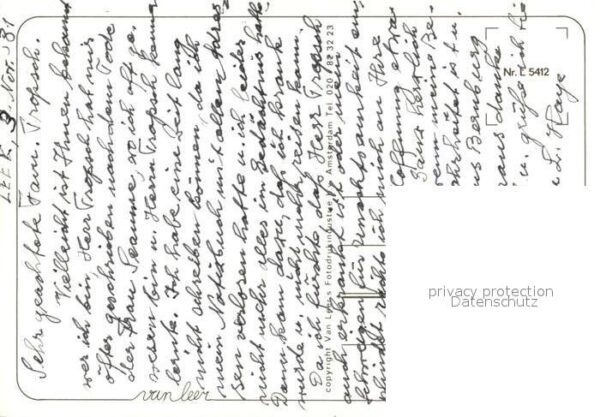 LEEK, 3 Nov. 81
Sehr geachtete Fam. Tropsch.
Vielleicht ist Ihnen bekannt
wer ich bin, Herr Tropsch hat mir
öfter geschrieben nach dem Tode
der Frau Seaume, wo ich oft ge-
wesen bin u. Herrn Tropsch kennen
lernte. Ich habe eine Zeit lang
nicht schreiben können, da ich
mein Notizbuch mit allen Adres
sen verloren hatte u. ich leider
nicht mehr alles im Gedächtnis hatte
Dann kam dazu, daß ich krank
wurde u. nicht mehr reisen kann.
Da ich fürchte, daß Herr Tropsch
auch erkrankt ist oder mein
schweigen für Unachtsamkeit an,
ich mich an Ihre
Hoffnung etwas
Ganz herzlich
wenn meine Be-
ist u.
aus Bernburg
aus danke
u. grüße ich Sie
L. Kaye
Nr. L 5412
copyright Van Leer's Fotodrukindustrie bv Amsterdam Tel. 020 - 82 32 23
van leer
privacy protection
Datenschutz